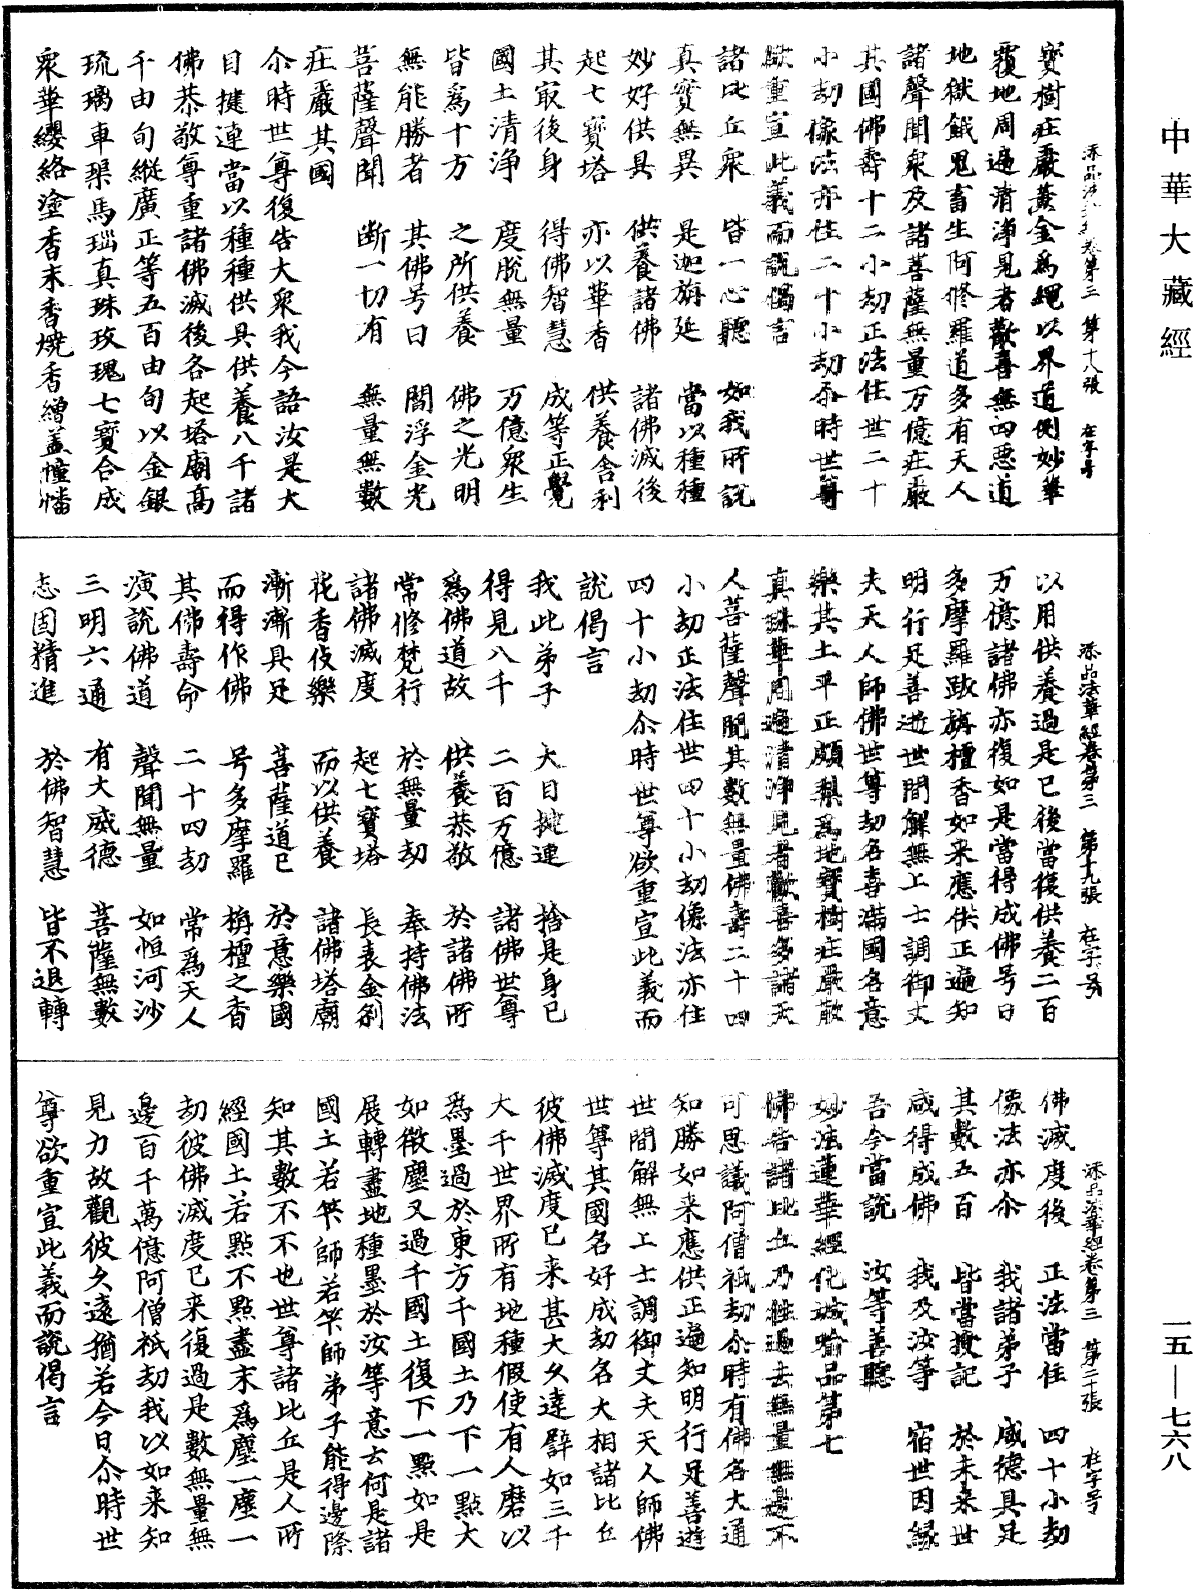 中華大藏經
添品法華經卷第三 第十八張 在字号
寶樹莊嚴黃金為繩以界道側妙華
覆地周遍清淨見者歡喜無四惡道
地獄餓鬼畜生阿修羅道多有天人
諸聲聞衆及諸菩薩無量万億莊嚴
其國佛壽十二小劫正法住世二十
小劫像法亦住二十小劫尒時世尊
欲重宣此義而說偈言
諸比丘衆 皆一心聽 如我所說
真實無異 是迦旃延 當以種種
妙好供具 供養諸佛 諸佛滅後
起七寶塔 亦以華香 供養舍利
其㝡後身 得佛智慧 成等正覺
國土清淨 度脫無量 万億衆生
皆為十方 之所供養 佛之光明
無能勝者 其佛号曰 閻浮金光
菩薩聲聞 斷一切有 無量無數
莊嚴其國
尒時世尊復告大衆我今語汝是大
目揵連當以種種供具供養八千諸
佛恭敬尊重諸佛滅後各起塔廟高
千由旬縱廣正等五百由旬以金銀
琉璃車璖馬瑙真珠玫瑰七寶合成
衆華纓絡塗香末香燒香繒蓋幢幡
添品法華經卷第三 第十九張 在字号
以用供養過是已後當復供養二百
万億諸佛亦復如是當得成佛号曰
多摩羅跋旃檀香如来應供正遍知
明行足善逝世間解無上士調御丈
夫天人師佛世尊劫名喜滿國名意
樂其土平正頗梨為地寶樹莊嚴散
真珠華周遍清淨見者歡喜多諸天
人菩薩聲聞其數無量佛壽二十四
小劫正法住世四十小劫像法亦住
四十小劫尒時世尊欲重宣此義而
說偈言
我此弟子 大目揵連 捨是身已
得見八千 二百万億 諸佛世尊
為佛道故 供養恭敬 於諸佛所
常修梵行 於無量劫 奉持佛法
諸佛滅度 起七寶塔 長表金剎
花香伎樂 而以供養 諸佛塔廟
漸漸具足 菩薩道已 於意樂國
而得作佛 号多摩羅 栴檀之香
其佛壽命 二十四劫 常為天人
演說佛道 聲聞無量 如恒河沙
三明六通 有大威德 菩薩無數
志固精進 於佛智慧 皆不退轉
添品法華經卷第三 第二十張 在字号
佛滅度後 正法當住 四十小劫
像法亦尒 我諸弟子 威德具足
其數五百 皆當授記 於未来世
咸得成佛 我及汝等 宿世因緣
吾今當說 汝等善聽
妙法蓮華經化城喻品第七
佛告諸比丘乃往過去無量無邊不
可思議阿僧祇劫尒時有佛名大通
知勝如来應供正遍知明行足善逝
世間解無上士調御丈夫天人師佛
世尊其國名好成劫名大相諸比丘
彼佛滅度已来甚大久遠譬如三千
大千世界所有地種假使有人磨以
為墨過於東方千國土乃下一點大
如微塵又過千國土復下一點如是
展轉盡地種墨於汝等意云何是諸
國土若筭師若筭師弟子能得邊際
知其數不不也世尊諸比丘是人所
經國土若點不點盡末為塵一塵一
劫彼佛滅度已来復過是數無量無
邊百千萬億阿僧祇劫我以如来知
見力故觀彼久遠猶若今日尒時世
尊欲重宣此義而說偈言
一五—七六八